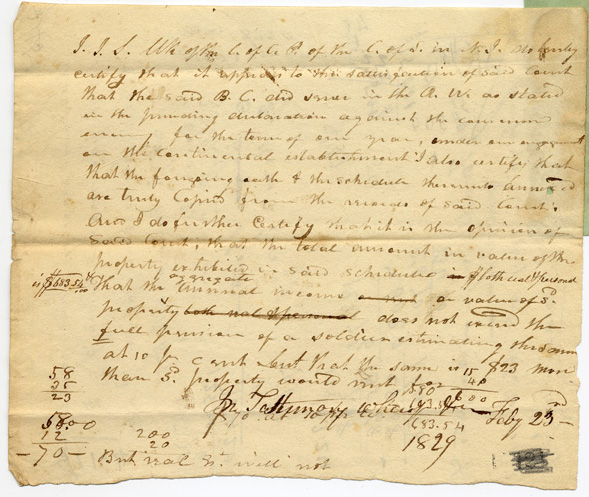 I. I. S. Clk of the C. of C. P. of the C. of S. in N. J. do hereby
certify that it appears to the satisfaction of said Court
that the said B. C. did serve in the R. W. as stated
in the preceding declaration against the common
enemy for the term of one year, under an engagement
on the continental establishment I also certify that
that the foregoing oath & the schedule thereunto annexed
are truly Copied from the records of said Court.
And I do further Certify that it is the opinion of
said Court, that the total amount in value of the
property exhibited in said schedule is of both real & personal
is $683.54
aggregate
that the annual income or value of sd.
property both real & personal does not exceed the
full pension of a soldier estimating the same
at 10 pr cent but that the same is $23 more
than sd. property would rent for
58
35
23
Feby 23rd
1683.54
1829
58.00
12
- 70 -
200
20
But real Et. will not